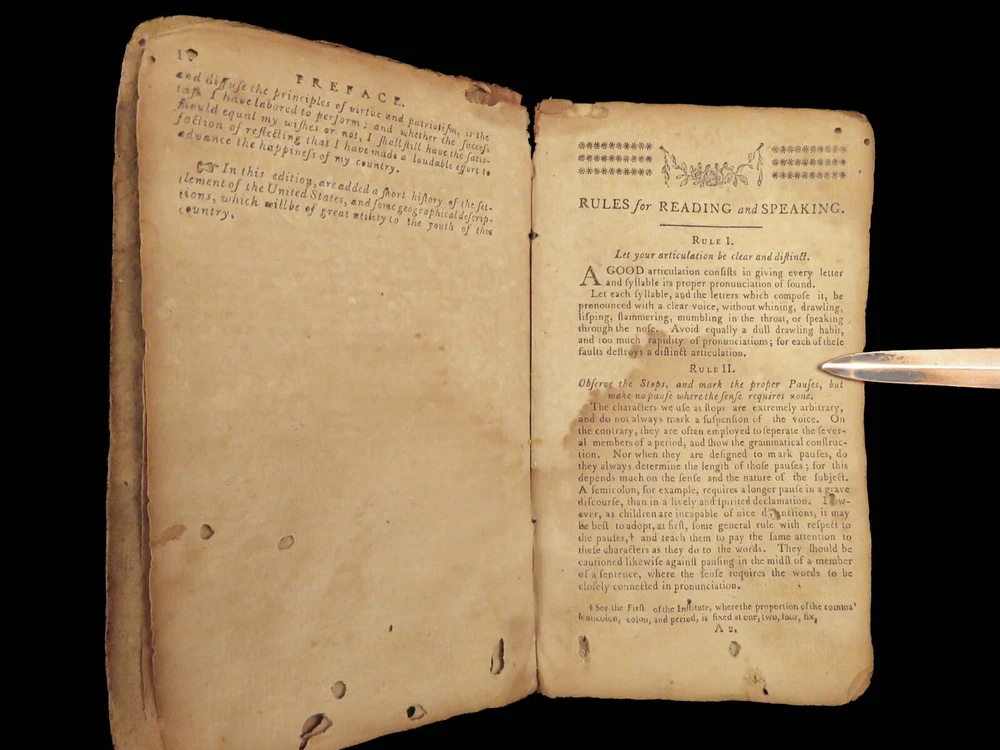 PREFACE.
and diffuſe the principles of virtue and patriotiſm, is the
taſk I have labored to perform; and whether the ſucceſs
ſhould equal my wiſhes or not, I ſhall ſtill have the ſatiſ-
faction of reflecting that I have made a laudable effort to
advance the happineſs of my country.
☞ In this edition, are added a ſhort hiſtory of the ſet-
tlement of the United States, and ſome geographical deſcrip-
tions, which will be of great utility to the youth of this
country.
RULES for READING and SPEAKING.
RULE I.
Let your articulation be clear and diſtinct.
A GOOD articulation conſiſts in giving every letter
and ſyllable its proper pronunciation of ſound.
Let each ſyllable, and the letters which compoſe it, be
pronounced with a clear voice, without whining, drawling,
liſping, ſtammering, mumbling in the throat, or ſpeaking
through the noſe. Avoid equally a dull drawling habit,
and too much rapidity of pronunciations; for each of theſe
faults deſtroys a diſtinct articulation.
RULE II.
Obſerve the Stops, and mark the proper Pauſes, but
make no pauſe where the ſenſe requires none.
The characters we uſe as ſtops are extremely arbitrary,
and do not always mark a ſuſpenſion of the voice. On
the contrary, they are often employed to ſeperate the ſever-
al members of a period, and ſhow the grammatical conſtruc-
tion. Nor when they are deſigned to mark pauſes, do
they always determine the length of thoſe pauſes; for this
depends much on the ſenſe and the nature of the ſubject.
A ſemicolon, for example, requires a longer pauſe in a grave
diſcourſe, than in a lively and ſpirited declamation.
ever, as children are incapable of nice it may
be beſt to adopt, at firſt, ſome general rule with reſpect to
the pauſes,† and teach them to pay the ſame attention to
theſe characters as they do to the words. They ſhould be
cautioned likewiſe againſt pauſing in the midſt of a member
of a ſentence, where the ſenſe requires the words to be
cloſely connected in pronunciation.
† See the Firſt of the Inſtitute, where the proportion of the comma
ſemicolon, colon, and period, is fixed at one, two, four, ſix,
A 2,